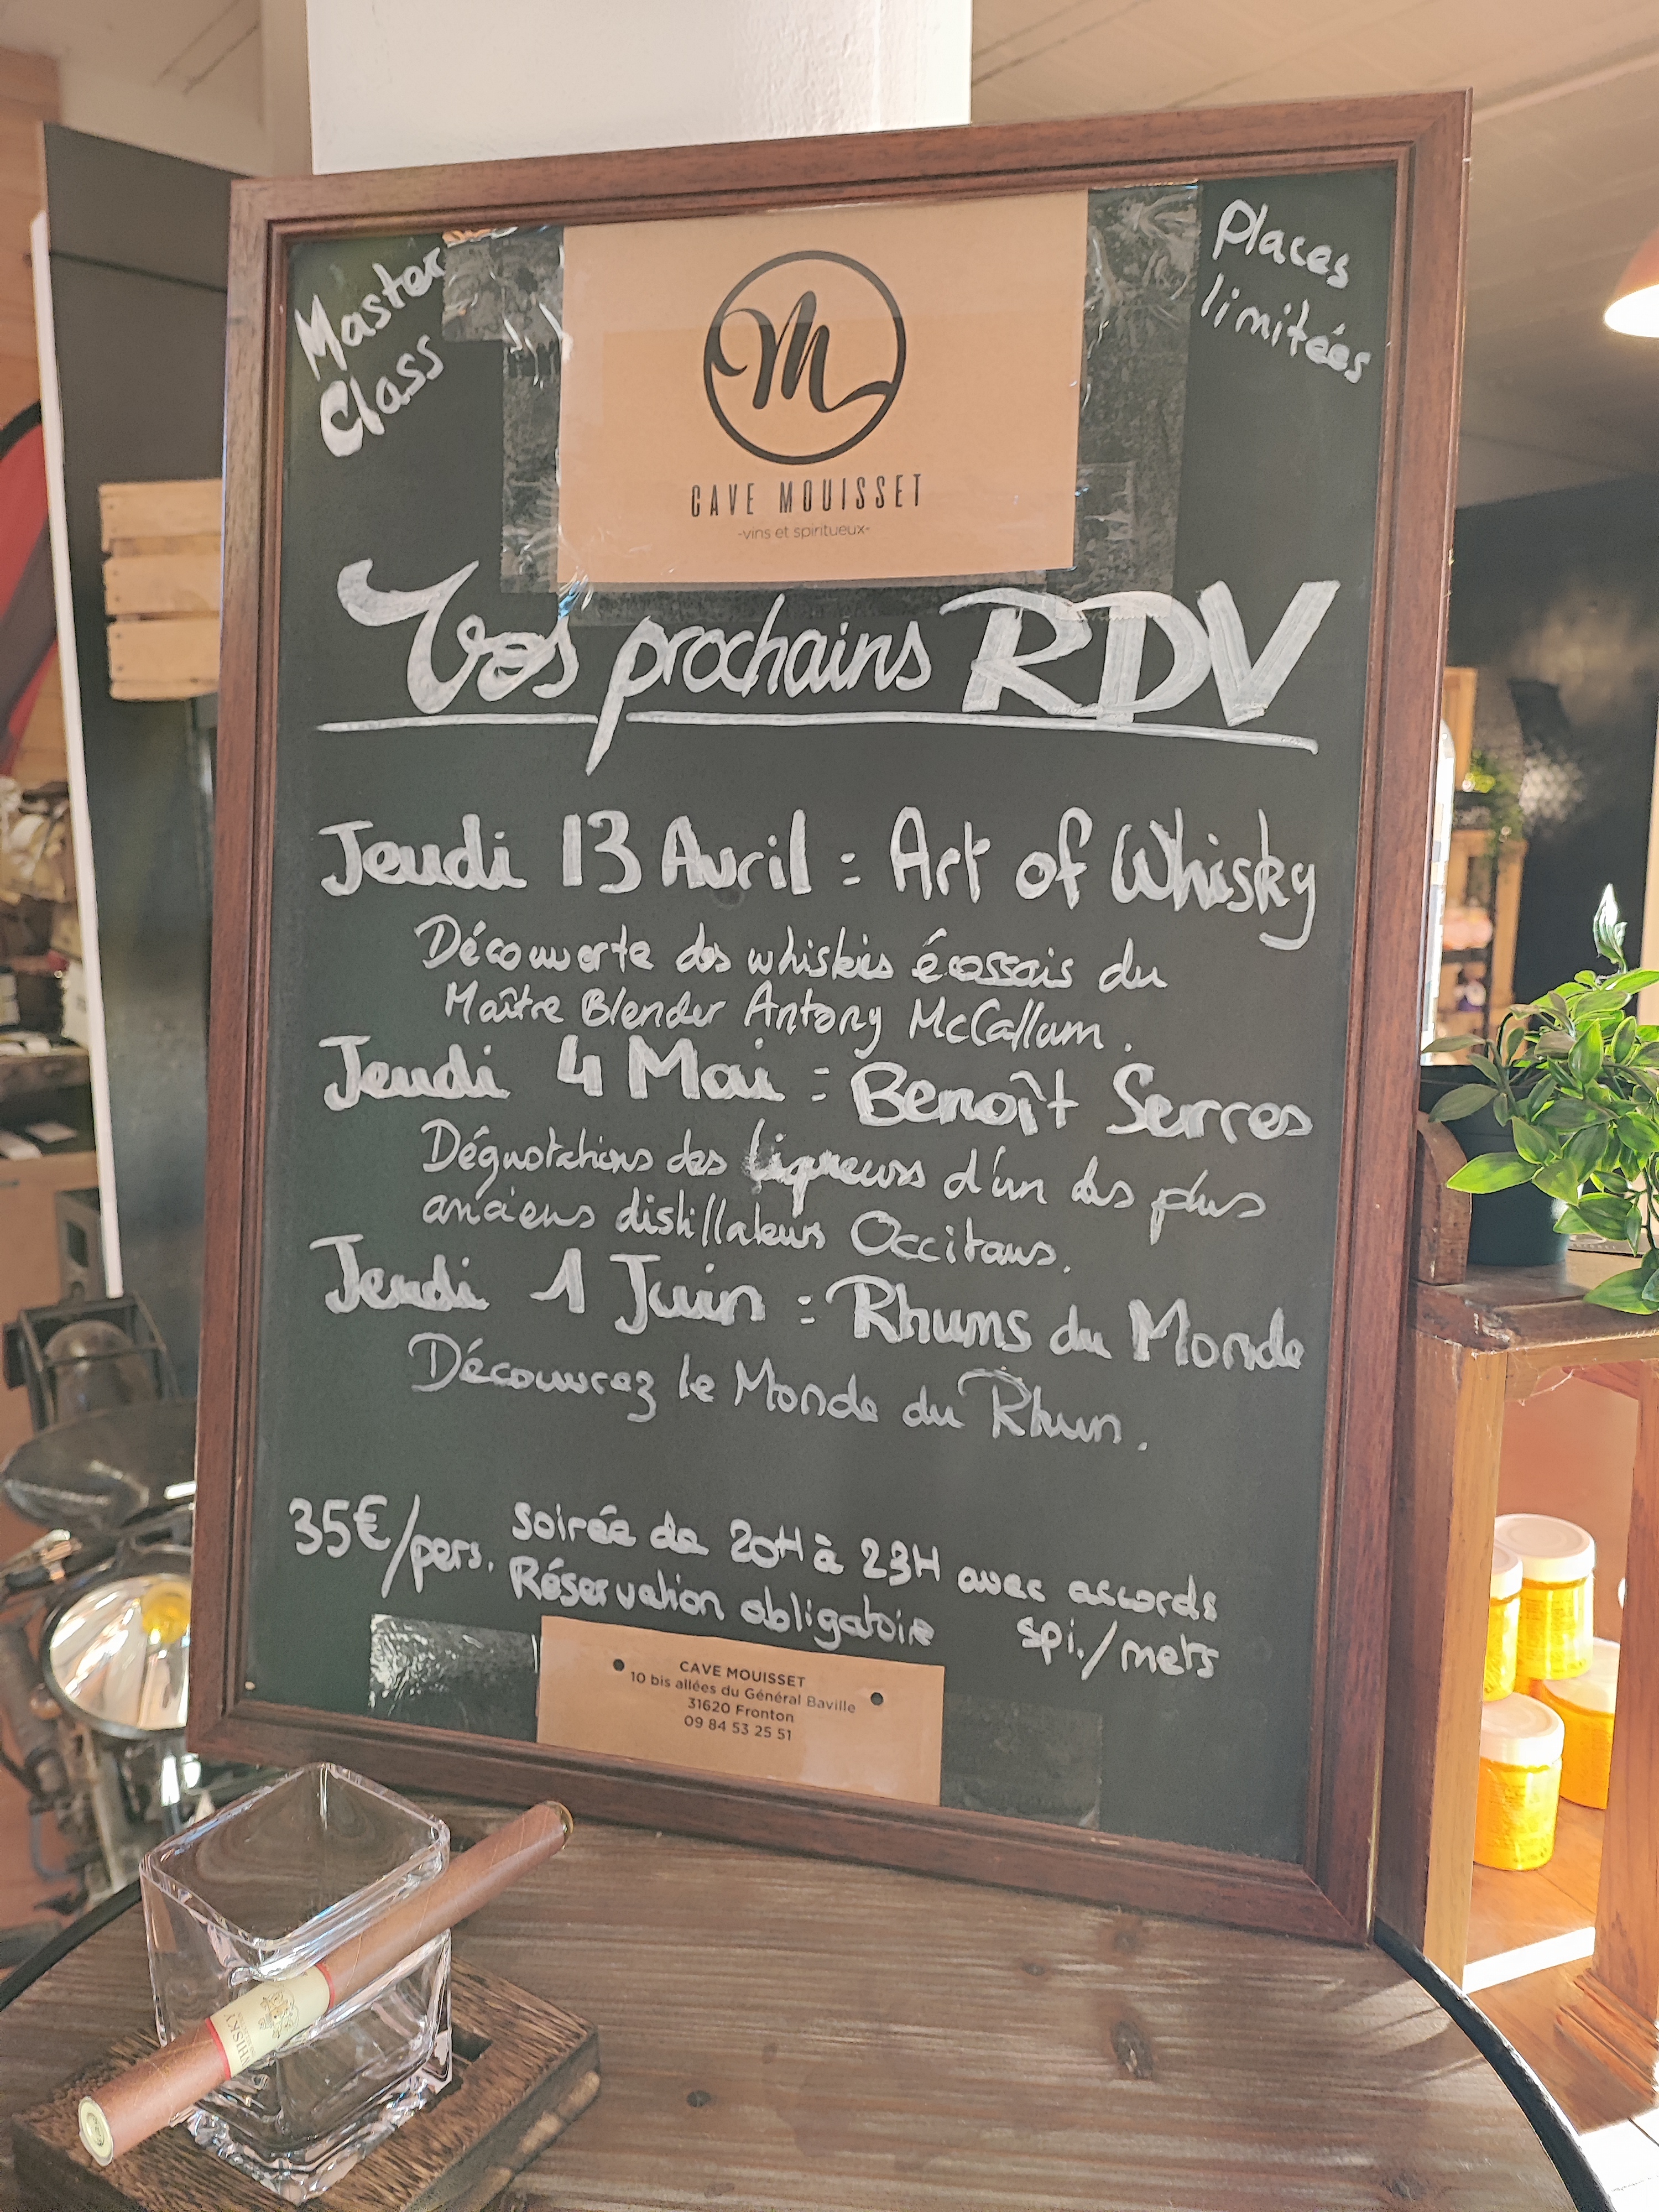 Master
Class
Places
limitées
M
CAVE MOUISSET
-vins et spiritueux-
Vos prochains RDV
Jeudi 13 Avril : Art of Whisky
Découverte des whiskies écossais du
Maître Blender Antony McCallum.
Jeudi 4 Mai : Benoît Serres
Dégustations des liqueurs d'un des plus
anciens distillateurs Occitans.
Jeudi 1 Juin : Rhums du Monde
Découvrez le Monde du Rhum.
35€/pers. Soirée de 20H à 23H avec accords
Réservation obligatoire spi./mets
CAVE MOUISSET
10 bis allées du Général Baville
31620 Fronton
09 84 53 25 51
WHISKY